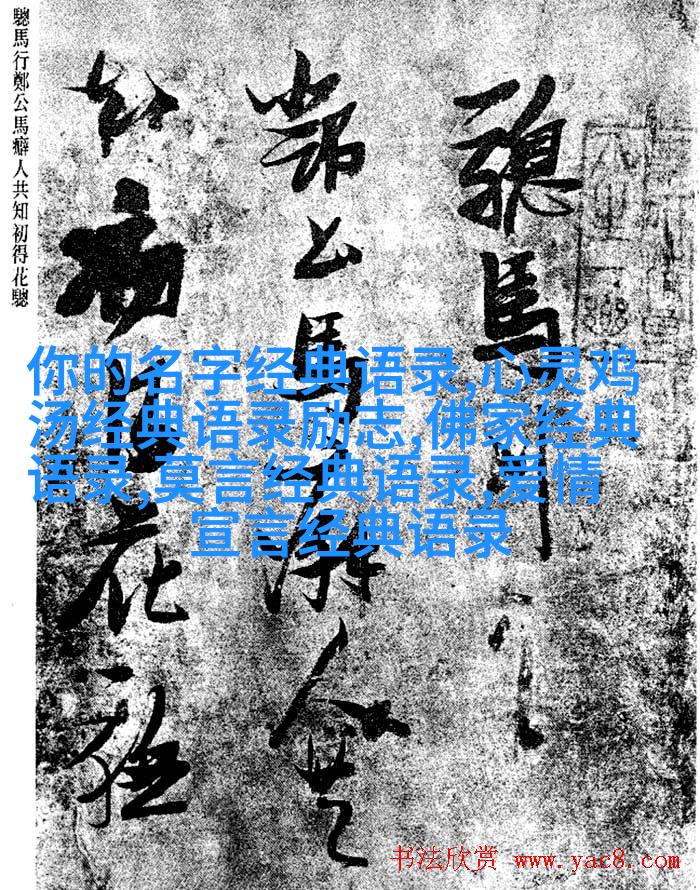 驄馬行
鄭公馬癖人共
知初得花驄
驄馬行鄭公馬癖人共知初得花驄
你的名字经典语录,心灵鸡
汤经典语录励志,佛家经典
语录,莫言经典语录,爱情
宣言经典语录
书法欣赏 www.yac8.com